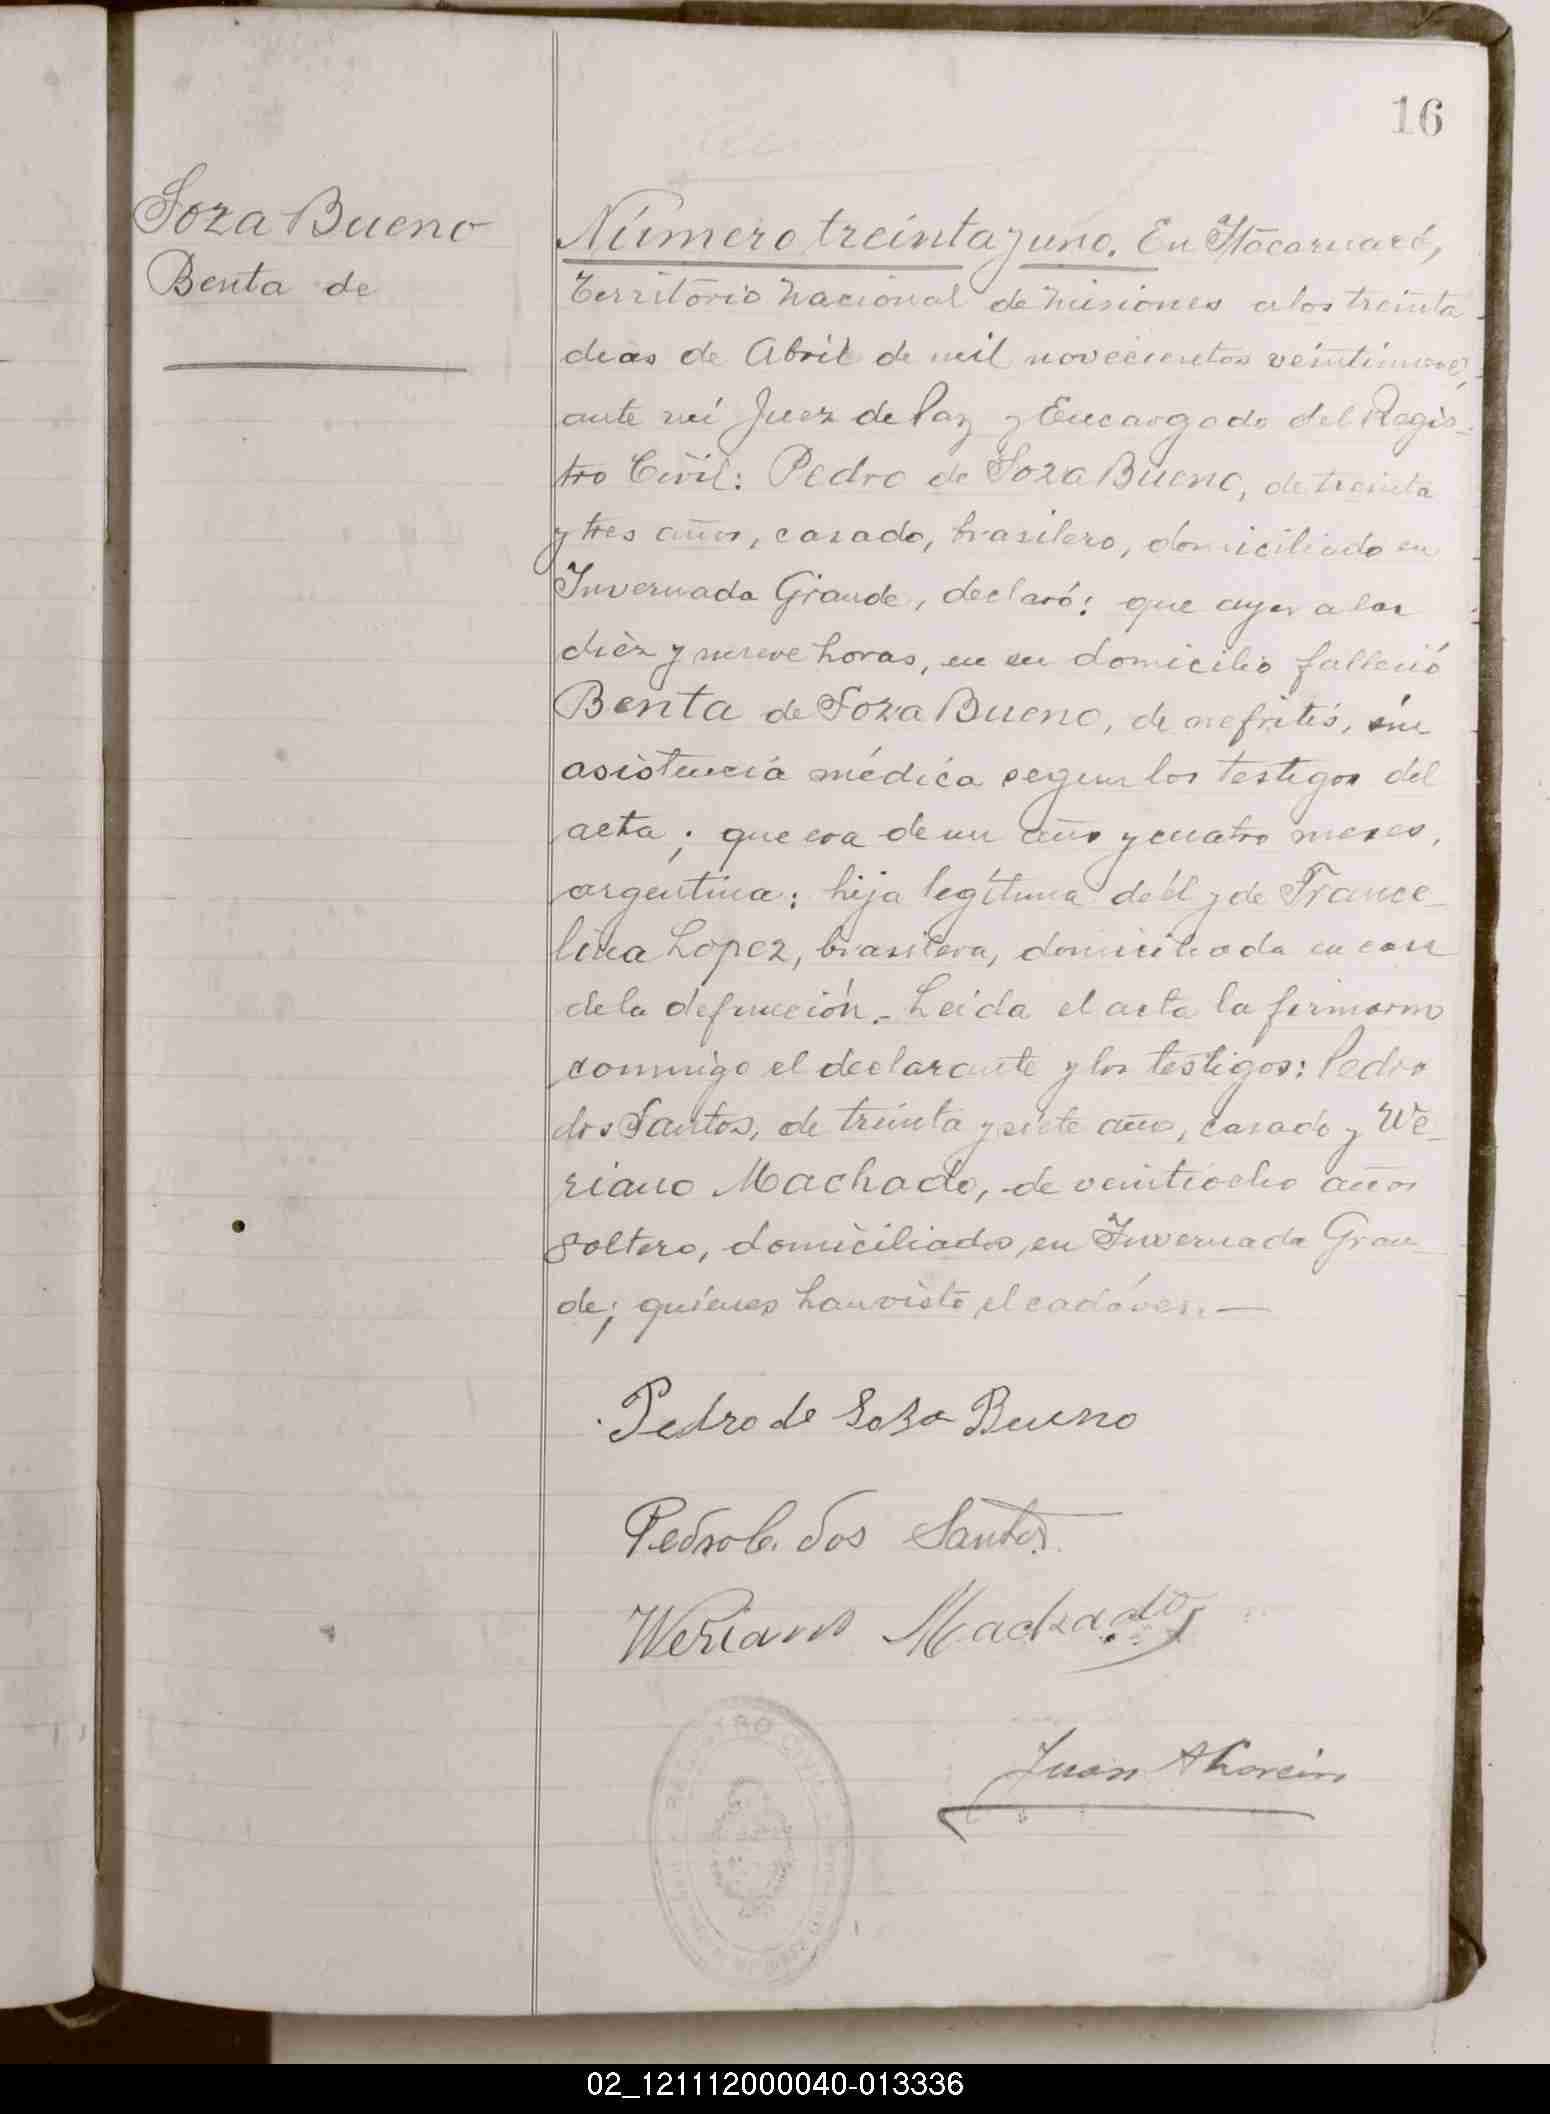 16
Soza Bueno
Benta de
Número treinta y uno. En Itacaruaré,
Territorio Nacional de Misiones a los treinta
dias de Abril de mil novecientos veintinueve,
ante mí Juez de Paz y Encargado del Regis-
tro Civil: Pedro de Soza Bueno, de treinta
y tres años, casado, brasilero, domiciliado en
Invernada Grande, declaró: que ayer a las
diez y nueve horas, en su domicilio falleció
Benta de Soza Bueno, de nefritis, sin
asistencia médica segun los testigos del
acta; que era de un año y cuatro meses,
argentina; hija legítima de él y de France-
lina Lopez, brasilera, domiciliada en casa
de la defunción. Leída el acta la firmaron
conmigo el declarante y los testigos: Pedro
dos Santos, de treinta y siete años, casado y We-
riano Machado, de veintiocho años
soltero, domiciliados en Invernada Gran-
de; quienes han visto el cadáver.—
Pedro de Soza Bueno
Pedro C. dos Santos
Weriano Machado
Juan A
REGISTRO CIVIL
02_121112000040-013336